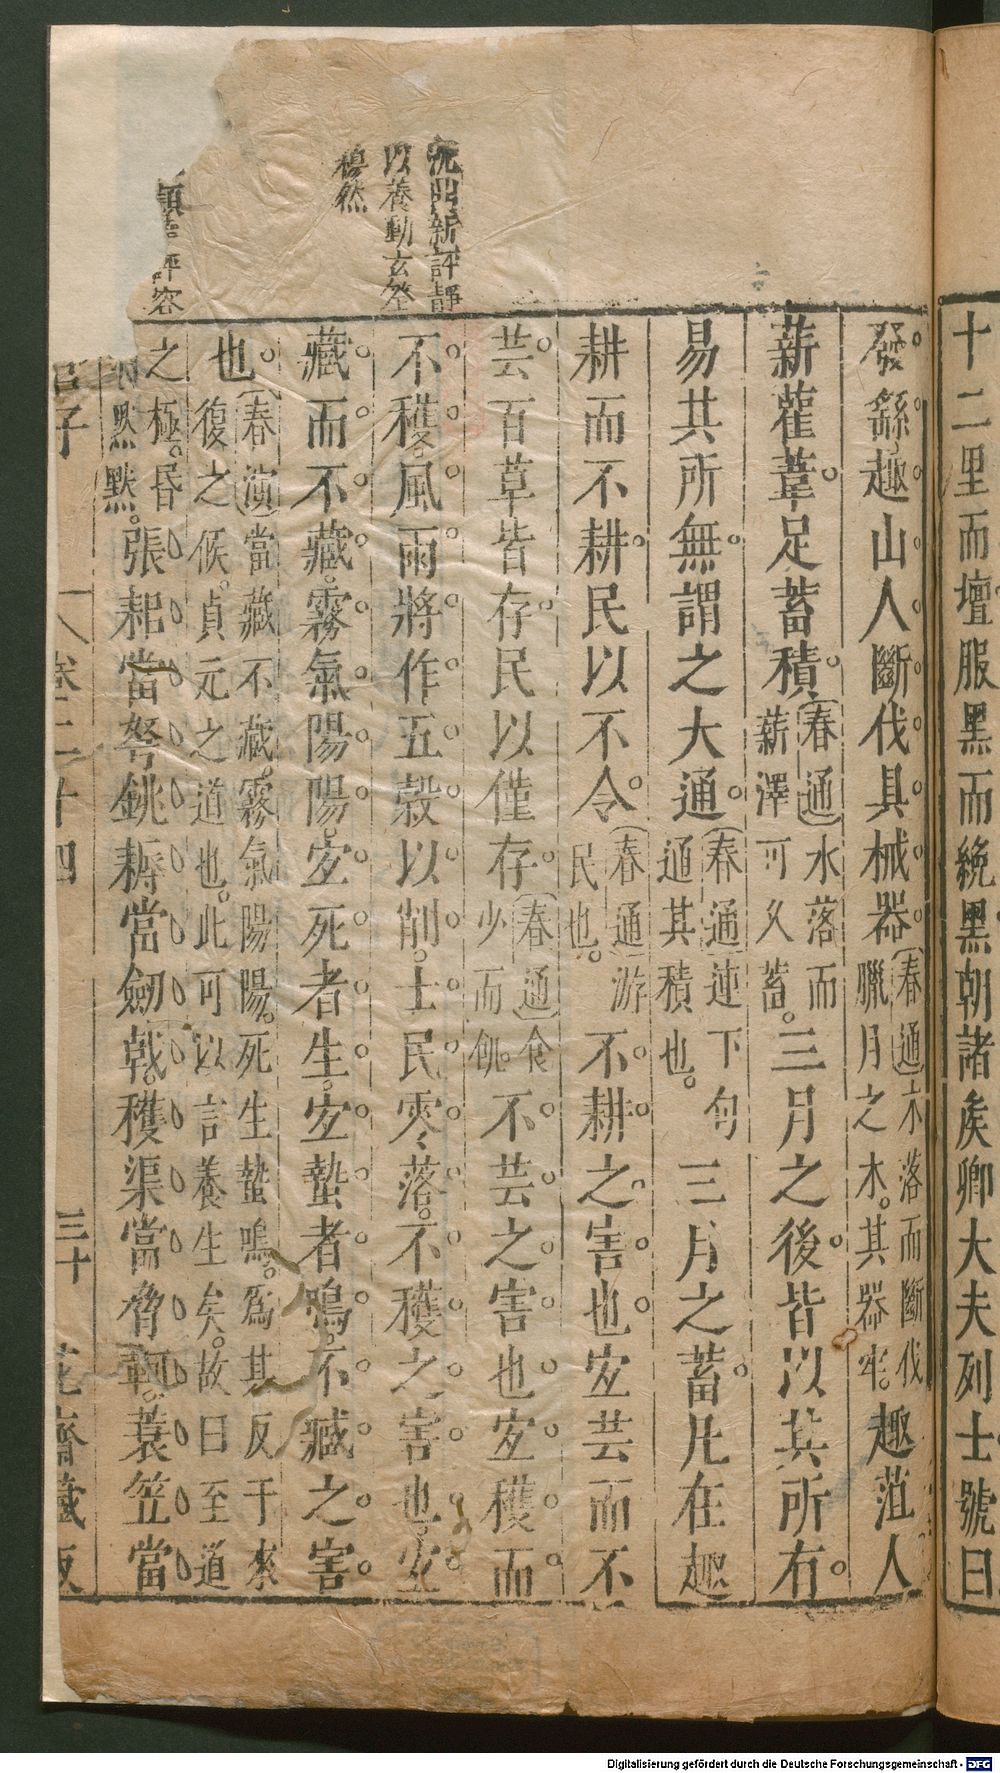 十二里而壇服黑而絻黑朝諸矦卿大夫列士號曰
發繇趣山人斷伐具械器(春通)木落而斷伐
臘月之木。其器牢。趣菹人
薪雚葦足蓄積(春通)水落而
薪澤可久蓄。三月之後皆以其所有
易其所無謂之大通。(春通)蓮下句
通其積也。三月之蓄凡在趣
耕而不耕民以不令。(春通)游
民也。不耕之害也宐芸而不
芸百草皆存民以僅存(春通)食
少而飢。不芸之害也宐穫而
不穫。風雨將作五穀以削。士民零落。不穫之害也。宐
藏而不藏。霧氣陽陽。宐死者生。宐蟄者鳴。不臧之害
也。(春演)當藏不藏。霧氣陽陽。死生蟄鳴。爲其反于來
復之候。貞元之道也。此可以言養生矣。故曰至道
之極。昏
默默。張耜當弩銚耨當劒戟。穫渠當脅軻。蓑笠當
卷二十四
三十
花齋藏板
新評靜
以養動玄筌
穆然
評容